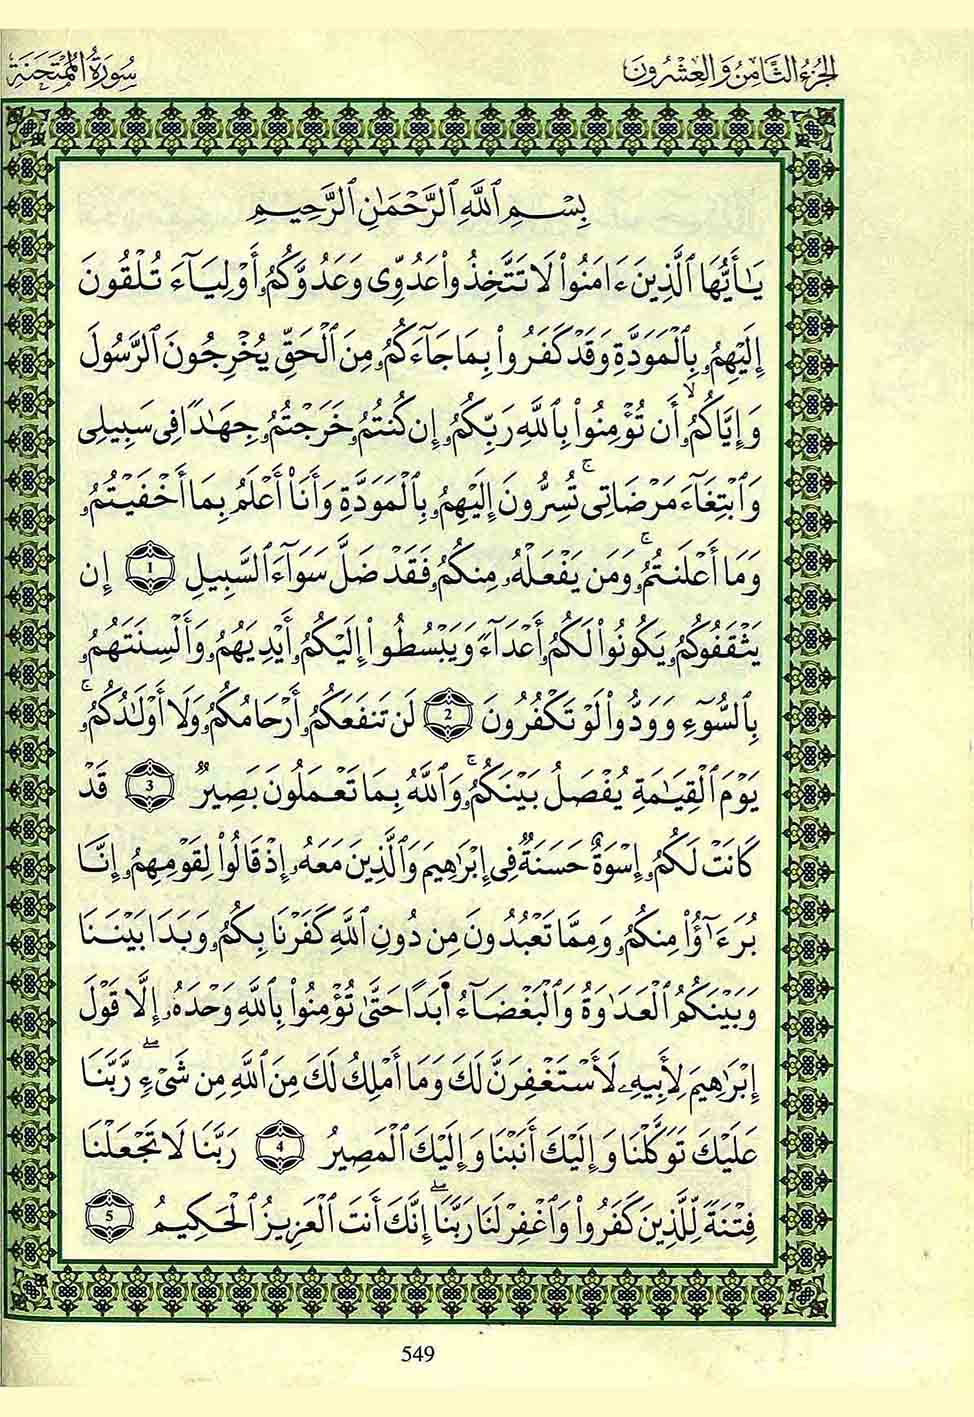 الجزء الثامن والعشرون
سورة الممتحنة
بِسْمِ ٱللَّهِ ٱلرَّحْمَٰنِ ٱلرَّحِيمِ
يَٰأَيُّهَا ٱلَّذِينَ ءَامَنُوا۟ لَا تَتَّخِذُوا۟ عَدُوِّى وَعَدُوَّكُمُۥ أَوْلِيَآءَ تُلْقُونَ
إِلَيْهِمُۥ بِٱلْمَوَدَّةِ وَقَدْ كَفَرُوا۟ بِمَا جَآءَكُمُۥ مِنَ ٱلْحَقِّ يُخْرِجُونَ ٱلرَّسُولَ
وَإِيَّاكُمُۥ أَن تُؤْمِنُوا۟ بِٱللَّهِ رَبِّكُمُۥ إِن كُنتُمُۥ خَرَجْتُمُۥ جِهَٰدًا فِى سَبِيلِى
وَٱبْتِغَآءَ مَرْضَاتِى ۚ تُسِرُّونَ إِلَيْهِمُۥ بِٱلْمَوَدَّةِ وَأَنَا۠ أَعْلَمُ بِمَا أَخْفَيْتُمُۥ
وَمَا أَعْلَنتُمُۥ ۚ وَمَن يَفْعَلْهُۥ مِنكُمُۥ فَقَدْ ضَلَّ سَوَآءَ ٱلسَّبِيلِ 1 إِن
يَثْقَفُوكُمُۥ يَكُونُوا۟ لَكُمُۥ أَعْدَآءً وَيَبْسُطُوا۟ إِلَيْكُمُۥ أَيْدِيَهُمُۥ وَأَلْسِنَتَهُمُۥ
بِٱلسُّوٓءِ وَوَدُّوا۟ لَوْ تَكْفُرُونَ 2 لَن تَنفَعَكُمُۥ أَرْحَامُكُمُۥ وَلَا أَوْلَٰدُكُمُۥ ۚ
يَوْمَ ٱلْقِيَٰمَةِ يُفْصَلُ بَيْنَكُمُۥ ۚ وَٱللَّهُ بِمَا تَعْمَلُونَ بَصِيرٌ 3 قَدْ
كَانَتْ لَكُمُۥ إِسْوَةٌ حَسَنَةٌ فِى إِبْرَٰهِيمَ وَٱلَّذِينَ مَعَهُۥ إِذْ قَالُوا۟ لِقَوْمِهِمُۥ إِنَّا
بُرَءَٰٓؤُا۟ مِنكُمُۥ وَمِمَّا تَعْبُدُونَ مِن دُونِ ٱللَّهِ كَفَرْنَا بِكُمُۥ وَبَدَا بَيْنَنَا
وَبَيْنَكُمُ ٱلْعَدَٰوَةُ وَٱلْبَغْضَآءُ أَبَدًا حَتَّىٰ تُؤْمِنُوا۟ بِٱللَّهِ وَحْدَهُۥ إِلَّا قَوْلَ
إِبْرَٰهِيمَ لِأَبِيهِۦ لَأَسْتَغْفِرَنَّ لَكَ وَمَا أَمْلِكُ لَكَ مِنَ ٱللَّهِ مِن شَىْءٍ ۖ رَّبَّنَا
عَلَيْكَ تَوَكَّلْنَا وَإِلَيْكَ أَنَبْنَا وَإِلَيْكَ ٱلْمَصِيرُ 4 رَبَّنَا لَا تَجْعَلْنَا
فِتْنَةً لِّلَّذِينَ كَفَرُوا۟ وَٱغْفِرْ لَنَا رَبَّنَا ۖ إِنَّكَ أَنتَ ٱلْعَزِيزُ ٱلْحَكِيمُ 5
549